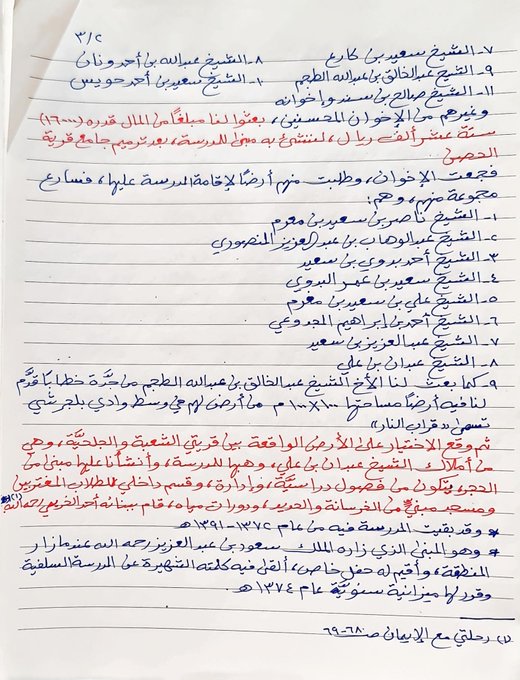 ٣/٢
٧- الشيخ سعيد بن كارع ٨- الشيخ عبدالله بن أحمد ونان
٩- الشيخ عبدالخالق بن عبدالله الطجم ١٠- الشيخ سعيد بن أحمد حويس
١١- الشيخ صالح بن سند وإخوانه
وغيرهم من الإخوان المحسنين، بعثوا لنا مبلغًا من المال قدره (١٦٠٠٠)
ستة عشر ألف ريال، لننشئ به مبنى للمدرسة، بعد ترميم جامع قرية
الحصن
فجمعت الإخوان، وطلبت منهم أرضًا لإقامة المدرسة عليها، فسارع
مجموعة منهم، وهم:
١- الشيخ ناصر بن سعيد بن مغرم
٢- الشيخ عبدالوهاب بن عبدالعزيز المنصوري
٣- الشيخ أحمد بدوي بن سعيد
٤- الشيخ سعيد بن عمر البدوي
٥- الشيخ علي بن سعيد بن مغرم
٦- الشيخ أحمد بن إبراهيم الجدوعي
٧- الشيخ عبدالعزيز بن سعيد
٨- الشيخ عبدان بن علي
٩- كما بعث لنا الأخ الشيخ عبدالخالق بن عبدالله الطجم من جدَّة خطابًا قدَّم
لنا فيه أرضًا مساحتها ١٠٠×١٠٠م من أرض لهم في وسط وادي بلجرشي
تسمى «قراب النار»
ثم وقع الاختيار على الأرض الواقعة بين قريتي الشعبة والجلحيَّة، وهي
من أملاك الشيخ عبدان بن علي، وهبها للمدرسة، وأنشأنا عليها مبنى من
الحجر، يتكون من فصول دراسيَّة، وإدارة، وقسم داخلي للطلاب المغتربين
ومسجد مبني من الخرسانة والحديد، ودورات مياه، قام ببنائه أحمد الخريصي رحمه الله (١)
* وقد بقيت المدرسة فيه من عام ١٣٧٢-١٣٩١هـ
* وهو المبنى الذي زاره الملك سعود بن عبدالعزيز رحمه الله عندما زار
المنطقة، وأقيم له حفل خاص، ألقى فيه كلمته الشهيرة عن المدرسة السلفية
وقرر لها ميزانية سنويَّة عام ١٣٧٤هـ
(١) رحلتي مع الإيمان صـ ٦٨-٦٩